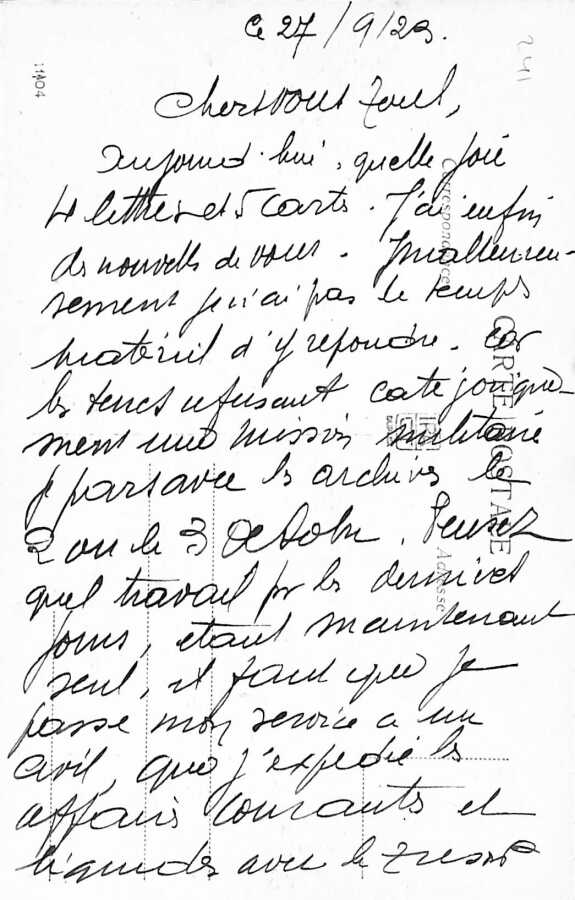 ce 27/9/23.
241
11404
Chers vous tous,
Aujourd'hui, quelle joie
4 lettres et 5 carts. J'ai enfin
des nouvells de vous. Malheureu-
sement je n'ai pas le temps
matériel d'y repondre. car
les turcs refusant catégorique-
ment une mission militaire
je pars avec les archives le
2 ou le 3 Octobre. Pensez
quel travail pr les derniers
jours, etant maintenant
seul, il faut que je
passe mon service a un
civil, que j'expedie les
affaires courants et
liquides avec le Tresor
Correspondance
CARTE POSTALE
Adresse